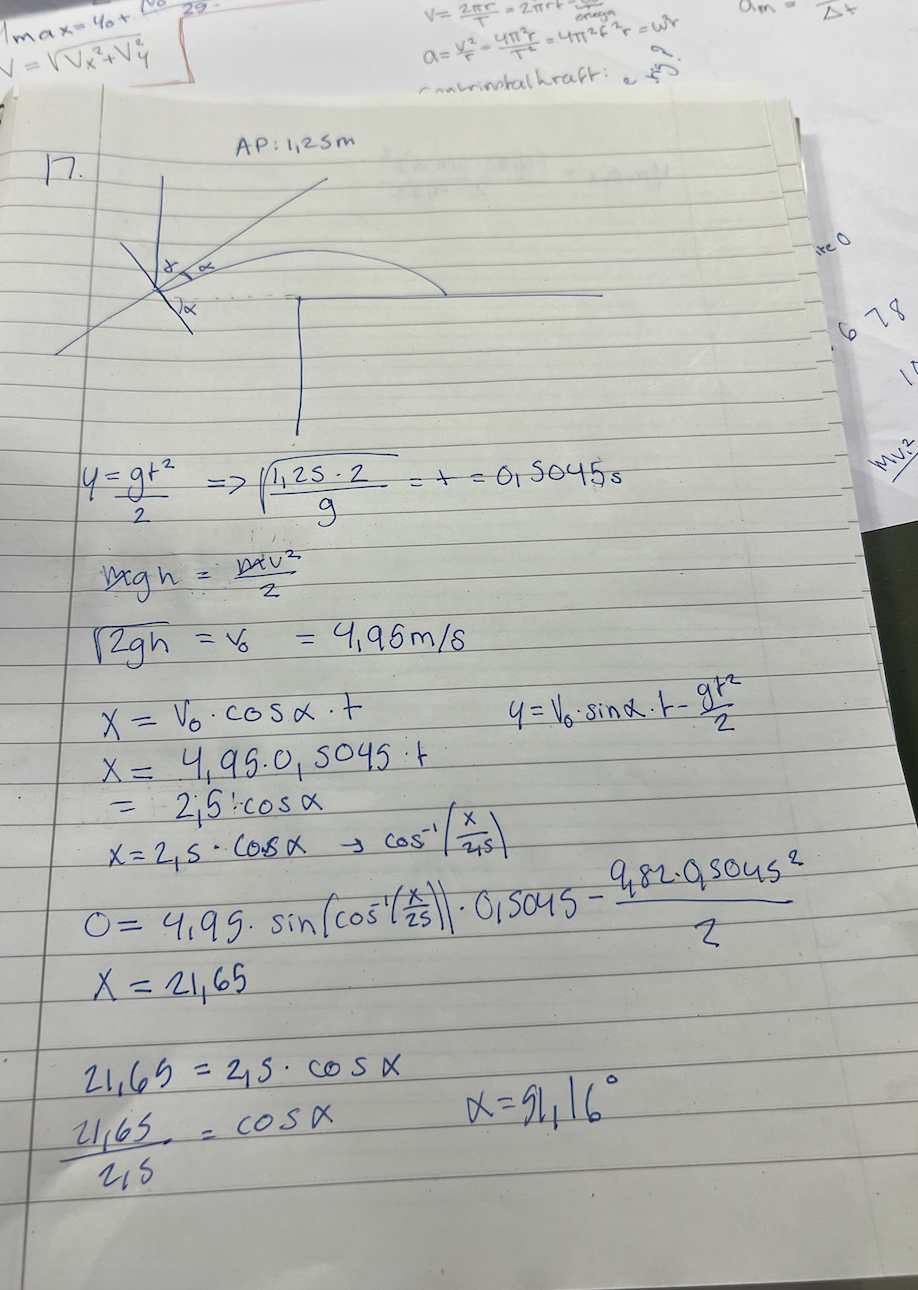 max = y₀ +
29
V = √Vx² + Vy²
V = 2πr/T = 2πrf =
omega
a = v²/r = 4π²r/T² = 4π²f²r = ω²r
am =
Δt
kraft:
AP: 1,25m
17.
α
α
y = gt²/2 => √(1,25 · 2/g) = t = 0,5045s
mgh = mv²/2
√2gh = v₀ = 4,95m/s
x = V₀ · cosα · t
y = V₀ · sinα · t - gt²/2
x = 4,95 · 0,5045 · t
= 2,5 · cosα
x = 2,5 · cosα → cos⁻¹(x/2,5)
0 = 4,95 · sin(cos⁻¹(x/25)) · 0,5045 - 9,82 · 0,5045²/2
x = 21,65
21,65 = 2,5 · cosα
21,65/2,5 = cosα
α = 51,16°
678
mv²